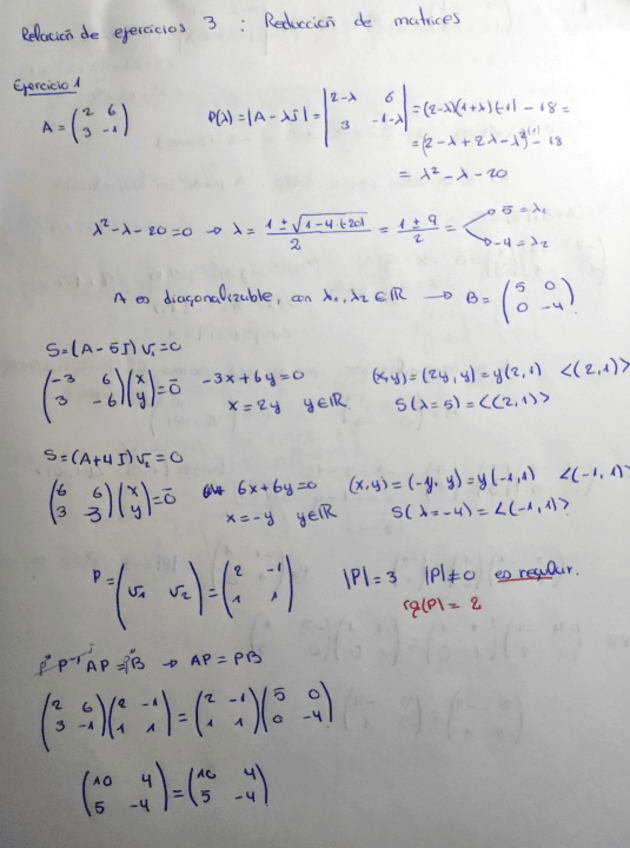 Relación de ejercicios 3 : Reducción de matrices
Ejercicio 1
A = (2 6; 3 -1) P(λ) = |A - λI| = |2-λ 6; 3 -1-λ| = (2-λ)(1+λ)(-1) - 18 =
= (2 - λ + 2λ - λ²)(-1) - 18
= λ² - λ - 20
λ² - λ - 20 = 0 → λ = (1 ± √(1-4·(-20)))/2 = (1 ± 9)/2 = 5 = λ₁
-4 = λ₂
A es diagonalizable, con λ₁, λ₂ ∈ ℝ → B = (5 0; 0 -4)
S = (A - 5I) v₁ = 0
(-3 6; 3 -6)(x; y) = 0̄ -3x + 6y = 0 (x,y) = (2y, y) = y(2,1) <(2,1)>
x = 2y y ∈ ℝ S(λ=5) = <(2,1)>
S = (A + 4I) v₂ = 0
(6 6; 3 3)(x; y) = 0̄ 6x + 6y = 0 (x,y) = (-y, y) = y(-1,1) <(-1,1)>
x = -y y ∈ ℝ S(λ=-4) = <(-1,1)>
P = (v₁ v₂) = (2 -1; 1 1) |P| = 3 |P| ≠ 0 es regular.
rg(P) = 2
P P⁻¹ AP = PB → AP = PB
(2 6; 3 -1)(2 -1; 1 1) = (2 -1; 1 1)(5 0; 0 -4)
(10 4; 5 -4) = (10 4; 5 -4)